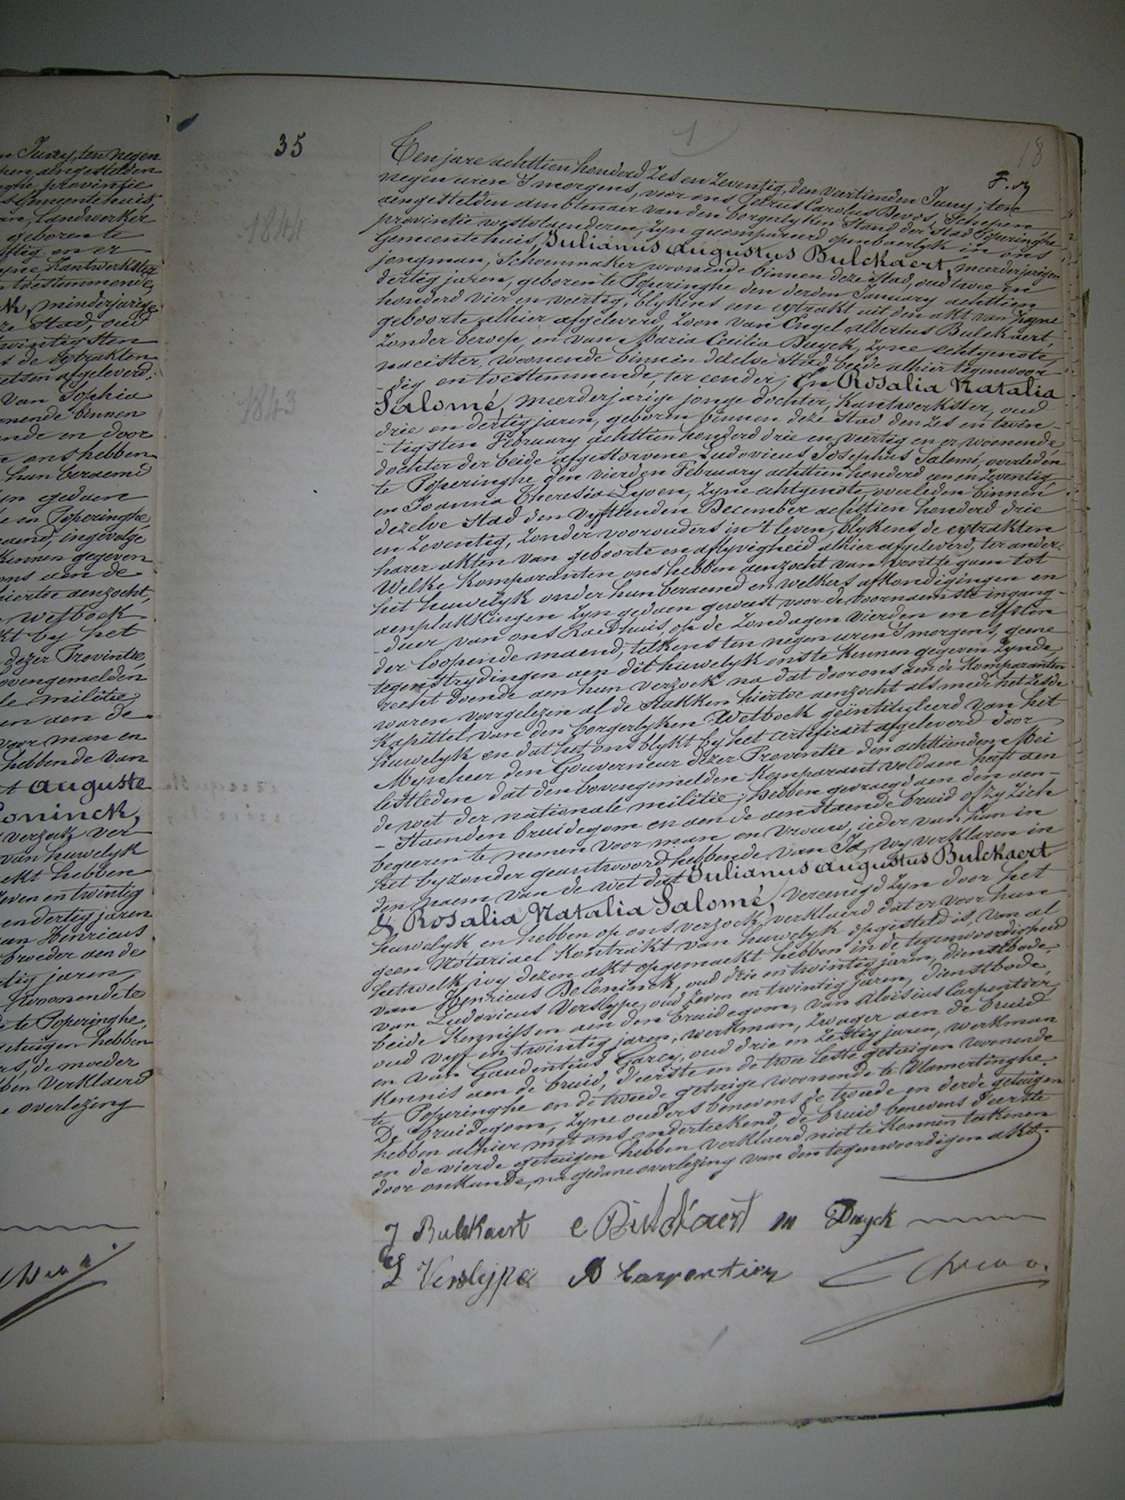 n Juny, ten negen
pen aengestelden
nghe provintie
s Gemeentehuis,
an, Landwerker
geboren te
fftig en er
yne, hantwerkster
toestemmende,
ck, minderjarige
ze Stad, oud
twintigsten
s de extrakten
elsten afgeleverd;
van Sophia
onende binnen
onde en door
ons hebben
hun beraemd
yn gedaen
e en Poperinghe,
aend, ingevolge
kennen gegeven
ons aen de
hiertoe aenzocht,
Wetboek
kt by het
dezer Provintie,
bovengemelden
le militie;
en aen de
voor man en
hebbende van
t Auguste
Coninck,
verzoek ver
van huwelyk
akt hebben
zeven en twintig
endertig jaren
van Henricus
broeder aen de
tig jaren,
woonende te
te Poperinghe,
getuigen hebben
rs, de moeder
ben verklaerd
e overlezing
35
1844
1843
1
18
F. 17
Ten jare achttien honderd zes en zeventig, den vartienden Juny, ten
negen uren 's morgens, voor ons Petrus Carolus Devos, Schepen
aengestelden ambtenaer van den borgerlyken Stand der Stad Poperinghe
provintie westvlaenderen, zyn gecompareerd openbaerlyk in ons
Gemeentehuis, Julianus Augustus Bulckaert, meerderjarigen
jongman, Schoenmaker woonende binnen deze stad, oud twee en
dertig jaren, geboren te Poperinghe den derden January achttien
honderd vier en veertig, blykens een extrakt uit den akt van zyne
geboorte alhier afgeleverd, Zoon van Engel Albertus Bulckaert,
zonder beroep, en van Maria Cecilia Duyck, zyne echtgenote,
naeister, woonende binnen dezelve Stad, beide alhier tegenwoor-
-dig en toestemmende, ter eender; En Rosalia Natalia
Salomé, meerderjarige jonge dochter, hantwerkster, oud
drie en dertig jaren, geboren binnen deze Stad den zes en twin-
-tigsten February achttien honderd drie en veertig en er woonende,
dochter der beide afgestorvene Ludovicus Josephus Salomé, overleden
te Poperinghe den vierden February achttien honderd een en zeventig,
en Joanna Theresia Lyoen, zyne echtgenote, overleden binnen
dezelve Stad den vyftienden December achttien honderd drie
en zeventig, zonder voorouders in 't leven, blykens de extrakten
harer akten van geboorte en aflyvigheid alhier afgeleverd, ter ander.
Welke komparanten ons hebben aenzocht van voorts te gaen tot
het huwelyk onder hun beraemd en welkers afkondigingen en
aenplakkingen zyn gedaen geweest voor de voornaemste ingang-
-deur van ons Raedhuis, op de zondagen vierden en elfsten
der loopende maend, telkens ten negen uren 's morgens, geene
tegenstrydingen aen dit huwelyk ons te kennen gegeven zynde,
recht doende aen hun verzoek na dat door ons aen de komparanten
waren voorgelezen al de stukken hiertoe aenzocht als mede het zesde
Kapittel van den borgerlyken Wetboek geïntituleerd van het
huwelyk en dat het ons blykt by het certificaet afgeleverd door
Mynheer den Gouverneur dezer Provintie den achttienden Mei
lestleden dat den bovengemelden komparant voldaen heeft aen
de wet der nationale militie; hebben gevraegd aen den aen-
-staenden bruidegom en aen de aenstaende bruid of zy zich
begeeren te nemen voor man en vrouw, ieder van hun in
het byzonder geantwoord hebbende van Ja, wy verklaren in
den naem van de wet dat Julianus Augustus Bulckaert
& Rosalia Natalia Salomé, vereenigd zyn door het
huwelyk en hebben op ons verzoek, verklaerd dat er voor hun
geen Notariael kontrakt van huwelyk opgesteld is, van al
hetwelk wy dezen akt opgemaekt hebben in de tegenwoordigheid
van Henricus De Coninck, oud drie en twintig jaren, dienstbode,
van Ludovicus Verslype, oud zeven en twintig jaren, dienstbode,
beide kennissen aen den bruidegom, van Aloïsius Carpentier,
oud vyf en twintig jaren, werkman, zwager aen de bruid
en van Gaudentius Garcy, oud drie en zestig jaren, werkman
kennis aen de bruid, d'eerste en de twee leste getuigen woonende
te Poperinghe en de tweede getuige woonende te Vlamertinghe.
De bruidegom, zyne ouders benevens de tweede en derde getuigen
hebben alhier met ons onderteekend, de bruid benevens d'eerste
en de vierde getuigen hebben verklaerd niet te kennen teekenen
door onkunde, na gedane overlezing van den tegenwoordigen akt.
J Bulckaert e Bulckaert m Duyck
L Verslype A Carpentier C Devos.